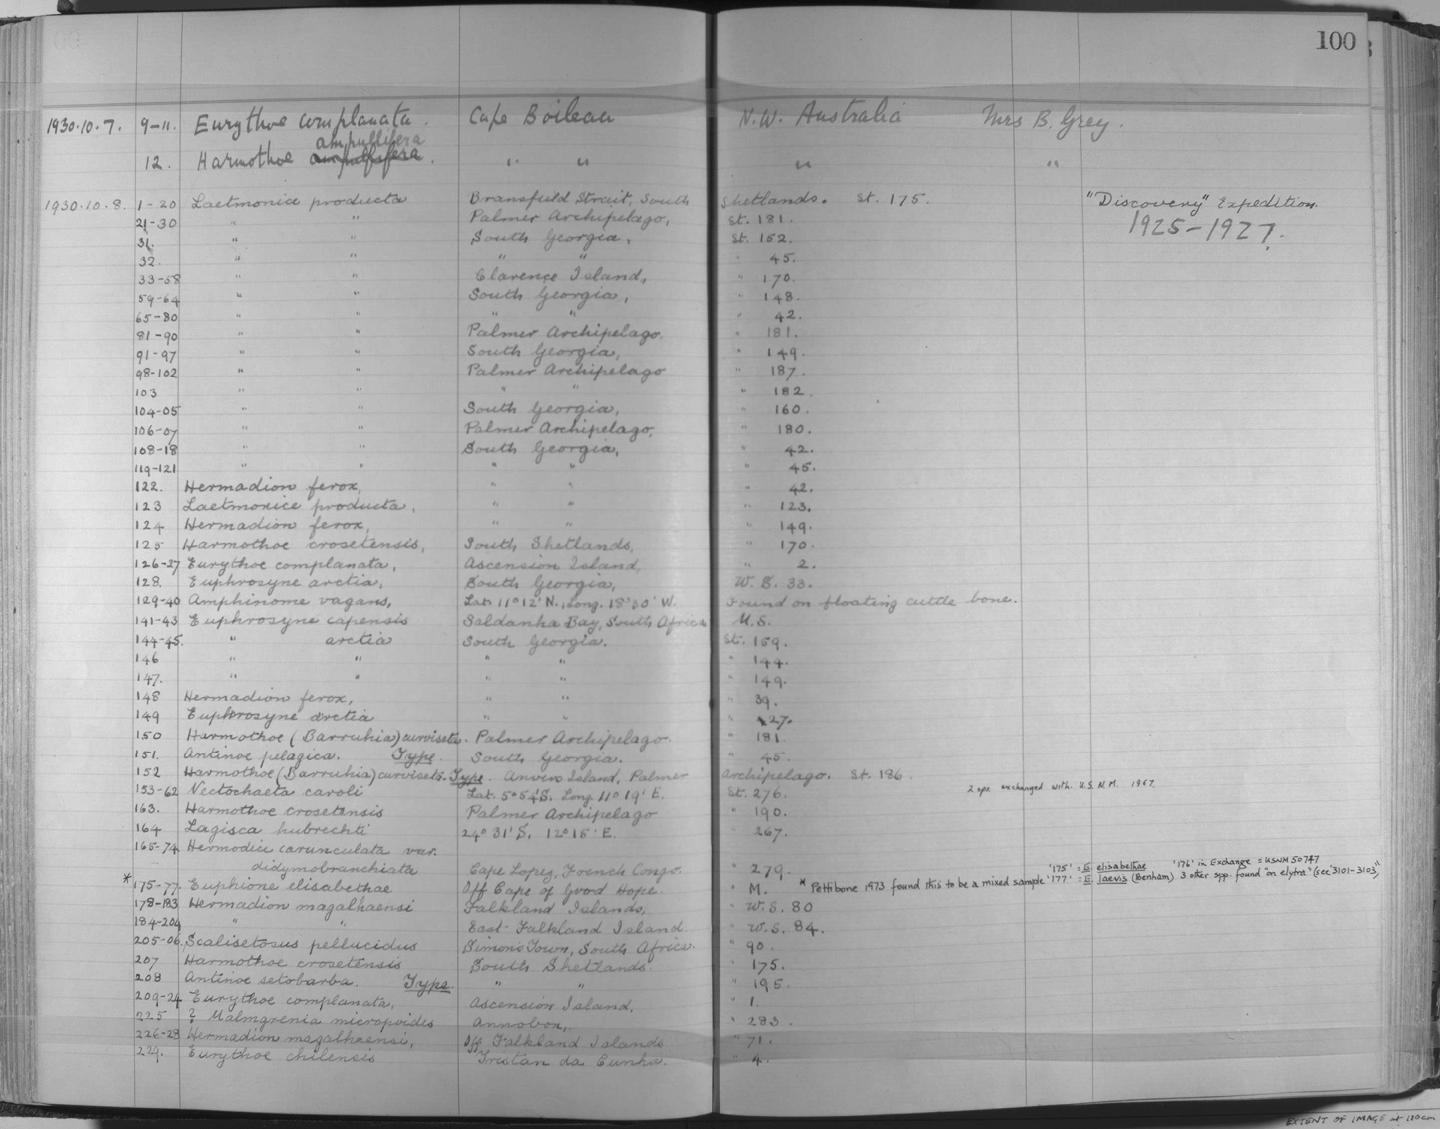 100
1930.10.7. 9-11. Eurythoe complanata. Cape Boileau N.W. Australia Mrs B. Grey.
ampullifera
12. Harmothoe " " " "
1930.10.8. 1-20 Laetmonice producta Bransfield Strait, South Shetlands. St. 175. "Discovery" Expedition.
21-30 " " Palmer Archipelago, St. 181. 1925-1927.
31. " " South Georgia, St. 152.
32. " " " " " 45.
33-58 " " Clarence Island, " 170.
59-64 " " South Georgia, " 148.
65-80 " " " " " 42.
81-90 " " Palmer Archipelago. " 181.
91-97 " " South Georgia, " 149.
98-102 " " Palmer Archipelago " 187.
103 " " " " " 182.
104-05 " " South Georgia, " 160.
106-07 " " Palmer Archipelago, " 180.
108-18 " " South Georgia, " 42.
119-121 " " " " " 45.
122. Hermadion ferox, " " " 42.
123 Laetmonice producta, " " " 123.
124 Hermadion ferox, " " " 149.
125 Harmothoe crosetensis, South Shetlands, " 170.
126-27 Eurythoe complanata, Ascension Island, " 2.
128. Euphrosyne arctia, South Georgia, W.S. 33.
129-40 Amphinome vagans, Lat. 11°12' N., Long. 18°30' W. Found on floating cuttle bone.
141-43 Euphrosyne capensis Saldanha Bay, South Africa M.S.
144-45. " arctia South Georgia. St. 159.
146 " " " " " 144.
147. " " " " " 149.
148 Hermadion ferox, " " " 39.
149 Euphrosyne arctia " " " 27.
150 Harmothoe (Barrukia) curviseta. Palmer Archipelago. " 181.
151. Antinoe pelagica. Type. South Georgia. " 45.
152 Harmothoe (Barrukia) curviseta. Type. Anvers Island, Palmer archipelago. St. 186.
153-62 Nectochaeta caroli Lat. 5°54'S. Long. 11°19' E. St. 276. 2 spx exchanged with U.S.N.M. 1967.
163. Harmothoe crosetensis Palmer Archipelago " 190.
164 Lagisca hubrechti 24° 31' S. 12° 15' E. " 267.
165-74 Hermodice carunculata var.
didymobranchiata Cape Lopez, French Congo. " 279. '175' = E elisabethae '176' in Exchange = USNM 50747
* 175-77. Euphione elisabethae Off Cape of Good Hope. " M. * Pettibone 1973 found this to be a mixed sample '177' = E laevis (Benham) 3 other spp. found on elytra" (see '3101-3103)"
178-183 Hermadion magalhaensi Falkland Islands, " W.S. 80
184-204 " " East Falkland Island. " W.S. 84.
205-06. Scalisetosus pellucidus Simon's Town, South Africa. " 90.
207 Harmothoe crosetensis South Shetlands. " 175.
208 Antinoe setobarba. Type. " " " 195.
209-24 Eurythoe complanata, Ascension Island, " 1.
225 ? Malmgrenia micropoides Annobon, " 283.
226-28 Hermadion magalhaensi, Off Falkland Islands " 71.
229. Eurythoe chilensis Tristan da Cunha. " 4.
EXTENT OF IMAGE at 120cm